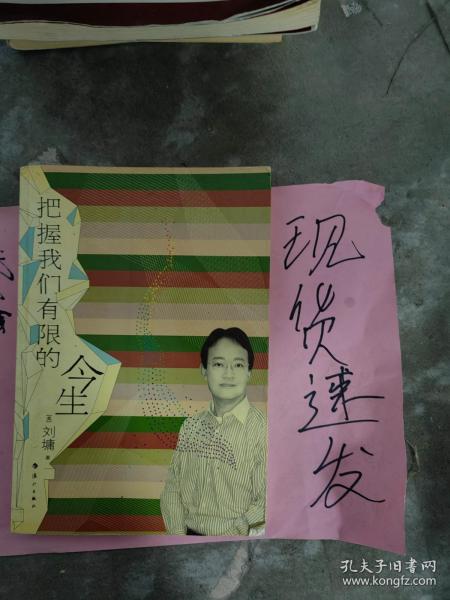 把握我们有限的
今生
[美]刘墉 著
漓江出版社
现货速发
孔夫子旧书网
www.kongfz.com